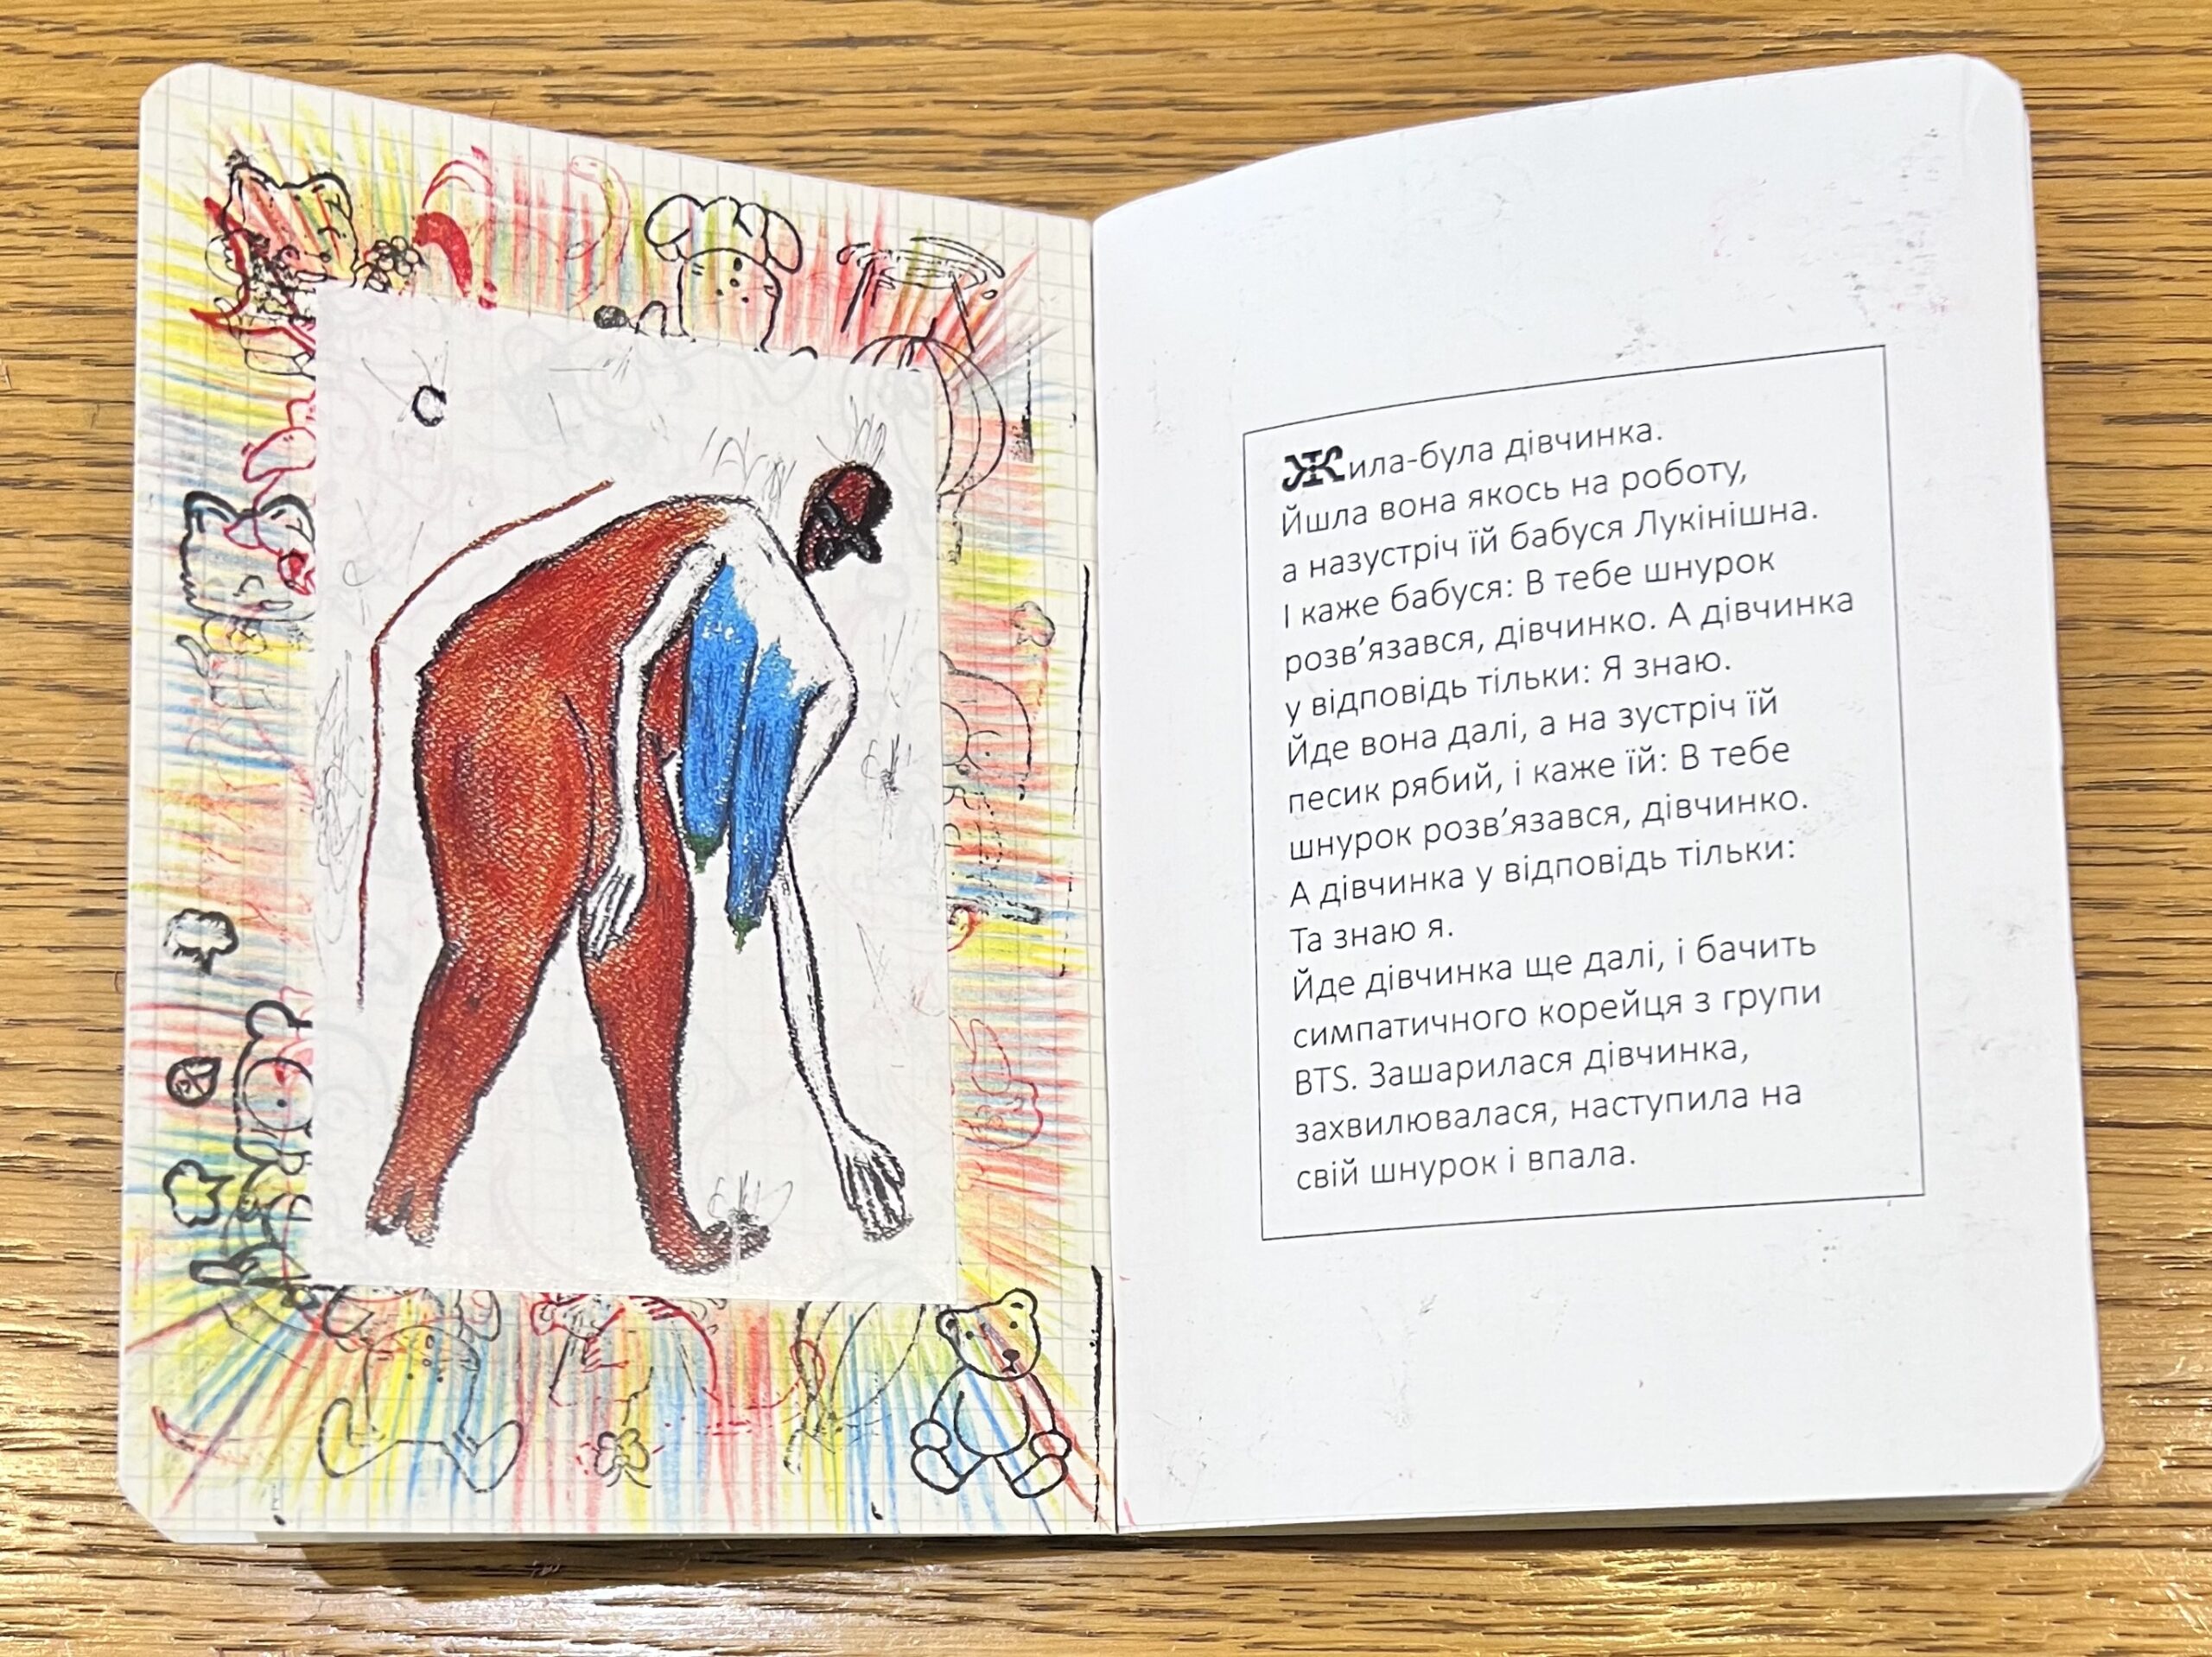 Жила-була дівчинка.
Йшла вона якось на роботу,
а назустріч їй бабуся Лукінішна.
І каже бабуся: В тебе шнурок
розв’язався, дівчинко. А дівчинка
у відповідь тільки: Я знаю.
Йде вона далі, а на зустріч їй
песик рябий, і каже їй: В тебе
шнурок розв’язався, дівчинко.
А дівчинка у відповідь тільки:
Та знаю я.
Йде дівчинка ще далі, і бачить
симпатичного корейця з групи
BTS. Зашарилася дівчинка,
захвилювалася, наступила на
свій шнурок і впала.